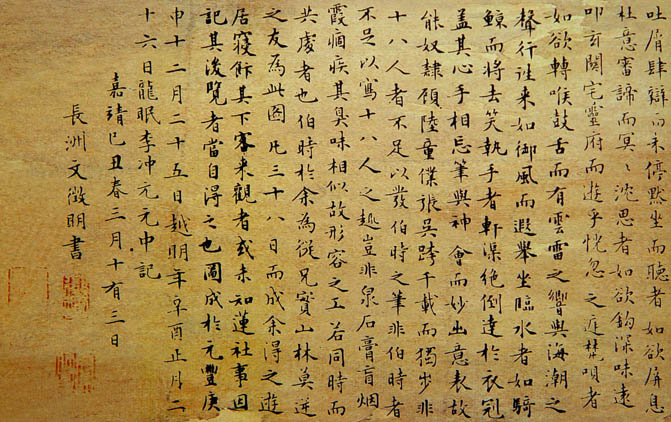 吐屑肆辯而未停默坐而聽者如欲屏息
杜意審諦而冥〻沈思者如欲鈎深味遠
叩玄關宅靈府而遊乎恍忽之庭梵唄者
如欲轉喉鼓舌而有雲雷之響與海潮之
聲行往来如御風而遐舉坐臨水者如騎
鯨而將去笑執手者軒渠絕倒達於衣冠
蓋其心手相忘筆與神會而妙出意表故
能奴隸顧陸童僕張吳跨千載而獨步非
十八人者不足以發伯時之筆非伯時者
不足以寫十八人之趣豈非泉石膏肓烟
霞痼疾其臭味相似故形容之工若同時而
共處者也伯時於余為從兄實山林莫逆
之友為此圖凡三十八日而成余得之遊
居寢飰其下客来觀者或未知蓮社事因
記其後覽者當自得之也圖成於元豐庚
申十二月二十五日越明年辛酉正月二
十六日龍眠李冲元元中記
嘉靖己丑春三月十有三日
長洲文徵明書